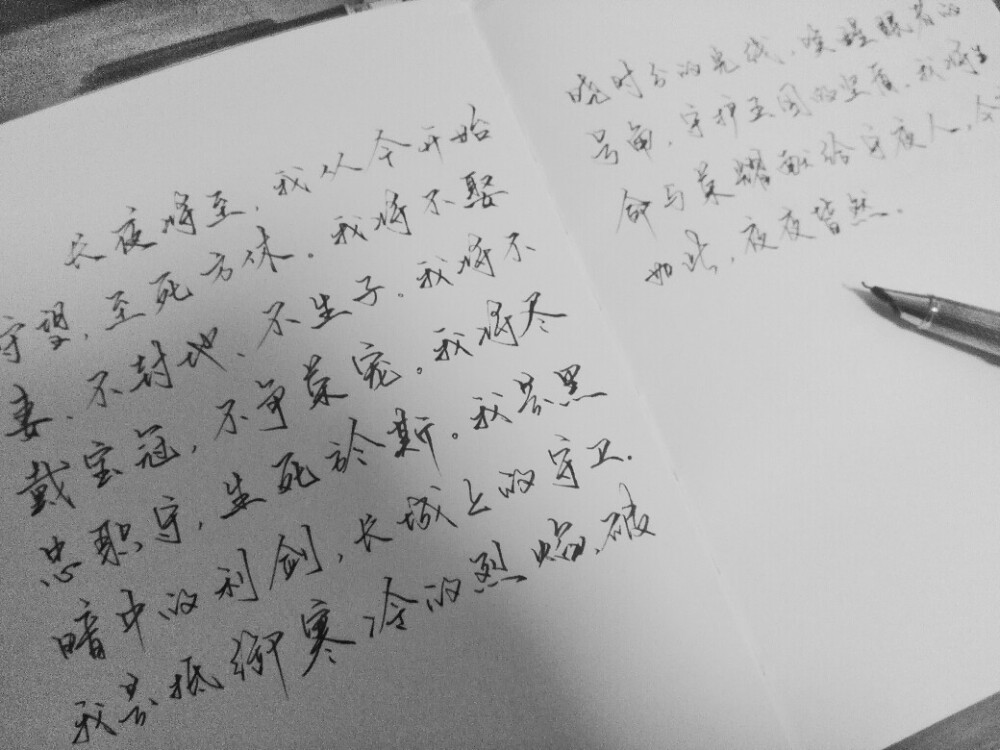 长夜将至,我从今开始
守望,至死方休。我将不娶
妻、不封地、不生子。我将不
戴宝冠,不争荣宠。我将尽
忠职守,生死於斯。我是黑
暗中的利剑,长城上的守卫.
我是抵御寒冷的烈焰,破
晓时分的光线,唤醒眠者的
号角,守护王国的坚盾.我将生
命与荣耀献给守夜人,今
如此,夜夜皆然.